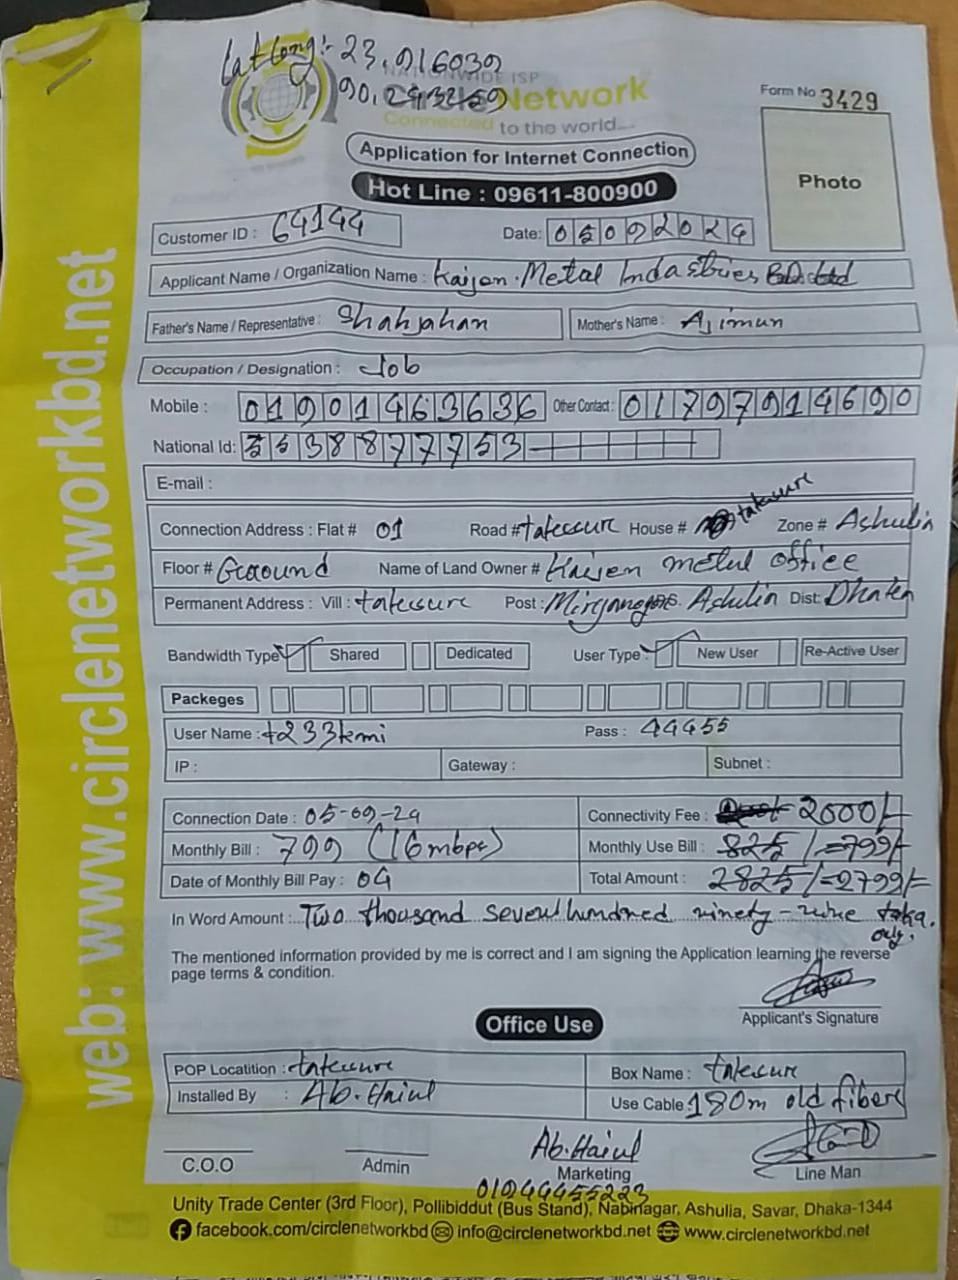 Lat Long:- 23.916039
90.243259
NATIONWIDE ISP
Circle Network
Connected to the world...
Form No 3429
Photo
Application for Internet Connection
Hot Line : 09611-800900
Customer ID : 64144
Date: 05092024
Applicant Name / Organization Name : Kaijen Metal Indastries
Father's Name / Representative : Shahjahan Mother's Name : Ajimun
Occupation / Designation : Job
Mobile : 01901463636 Other Contact : 01797914690
National Id: 5538877753
E-mail :
Connection Address : Flat # 01 Road # takssure House # takssure Zone # Ashulia
Floor # Ground Name of Land Owner # Kaijen metal office
Permanent Address : Vill : takssure Post : Ashulia Dist: Dhaka
Bandwidth Type Shared Dedicated User Type : New User Re-Active User
Packeges
User Name : t233kmi Pass : 44455
IP : Gateway : Subnet :
Connection Date : 05-09-24 Connectivity Fee : 2000/-
Monthly Bill : 799 (16mbps) Monthly Use Bill : 825/=799/-
Date of Monthly Bill Pay : 04 Total Amount : 2825/=2799/-
In Word Amount : Two thousand seven hundred ninety-nine taka.
only.
The mentioned information provided by me is correct and I am signing the Application learning the reverse
page terms & condition.
Applicant's Signature
Office Use
POP Locatition : takssure Box Name : takssure
Installed By : Ab. Haiul Use Cable : 180m old fiber
Ab. Haiul
C.O.O Admin Marketing Line Man
01944455223
Unity Trade Center (3rd Floor), Pollibiddut (Bus Stand), Nabinagar, Ashulia, Savar, Dhaka-1344
facebook.com/circlenetworkbd info@circlenetworkbd.net www.circlenetworkbd.net
web: www.circlenetworkbd.net